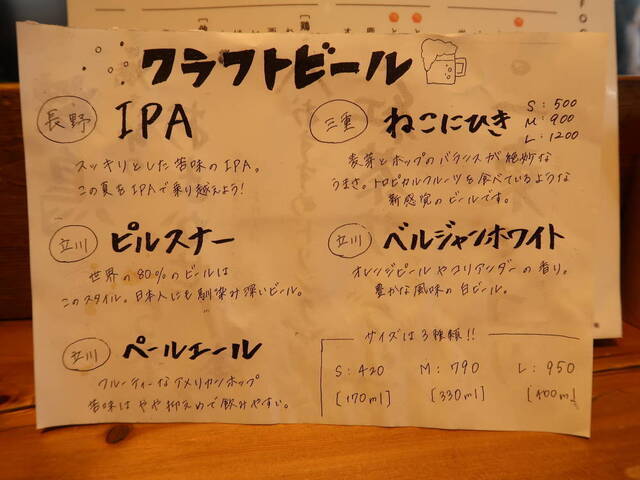 クラフトビール
長野 IPA
スッキリとした苦味のIPA。
この夏もIPAで乗り越えよう!
三重 ねこにひき
S: 500
M: 900
L: 1200
麦芽とホップのバランスが絶妙な
うまさ。トロピカルフルーツを食べているような
新感覚のビールです。
立川 ピルスナー
世界の80%のビールは
このスタイル。日本人にも馴染み深いビール。
立川 ベルジャンホワイト
オレンジピールやコリアンダーの香り。
豊かな風味の白ビール。
立川 ペールエール
フルーティーなアメリカンホップ
苦味はやや抑えめで飲みやすい。
サイズは3種類!!
S: 420 M: 790 L: 950
[170ml] [330ml] [400ml]